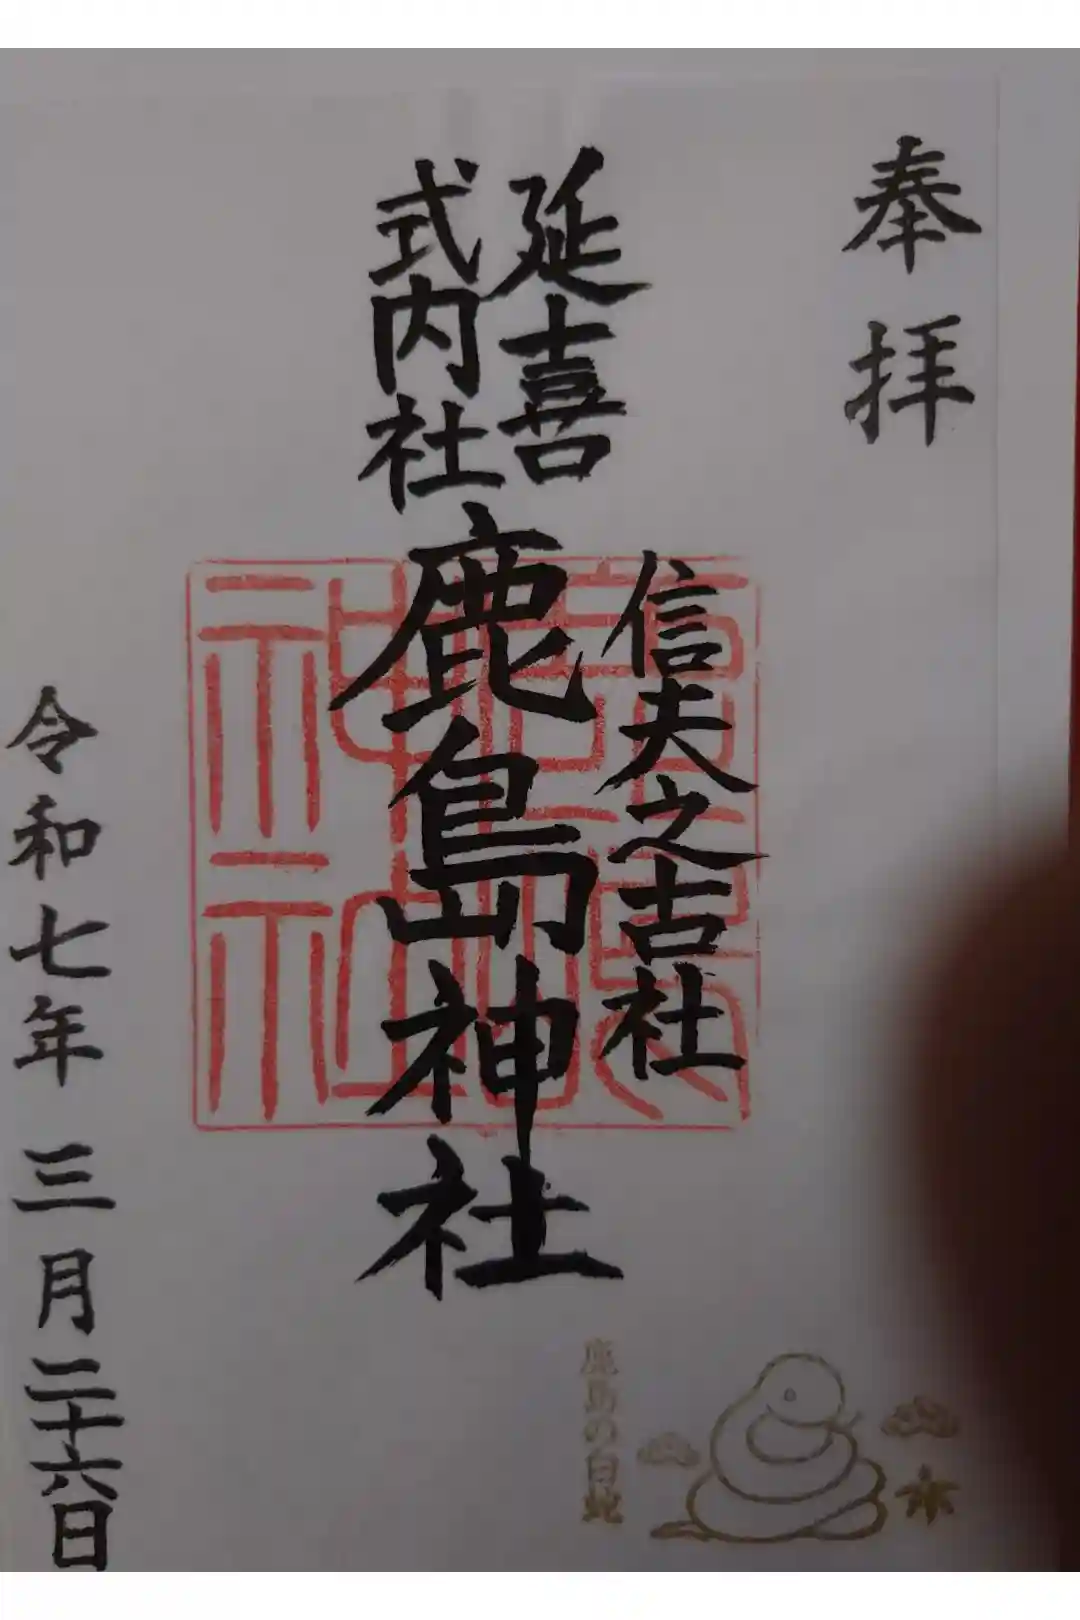 奉拝
延喜
式内社
信夫之古社
鹿島神社
令和七年三月二十六日
鹿島の白蛇